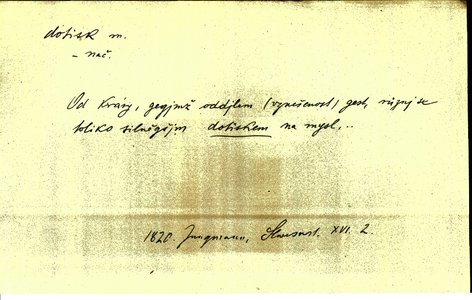 dotisk m.
– nač.
Od krásy, gegjmž oddjlem (vznešenost) gest, různj se
toliko silněgšjm dotiskem na mysl,..
1820. Jungmann, Slowesnost. XVI. 2.